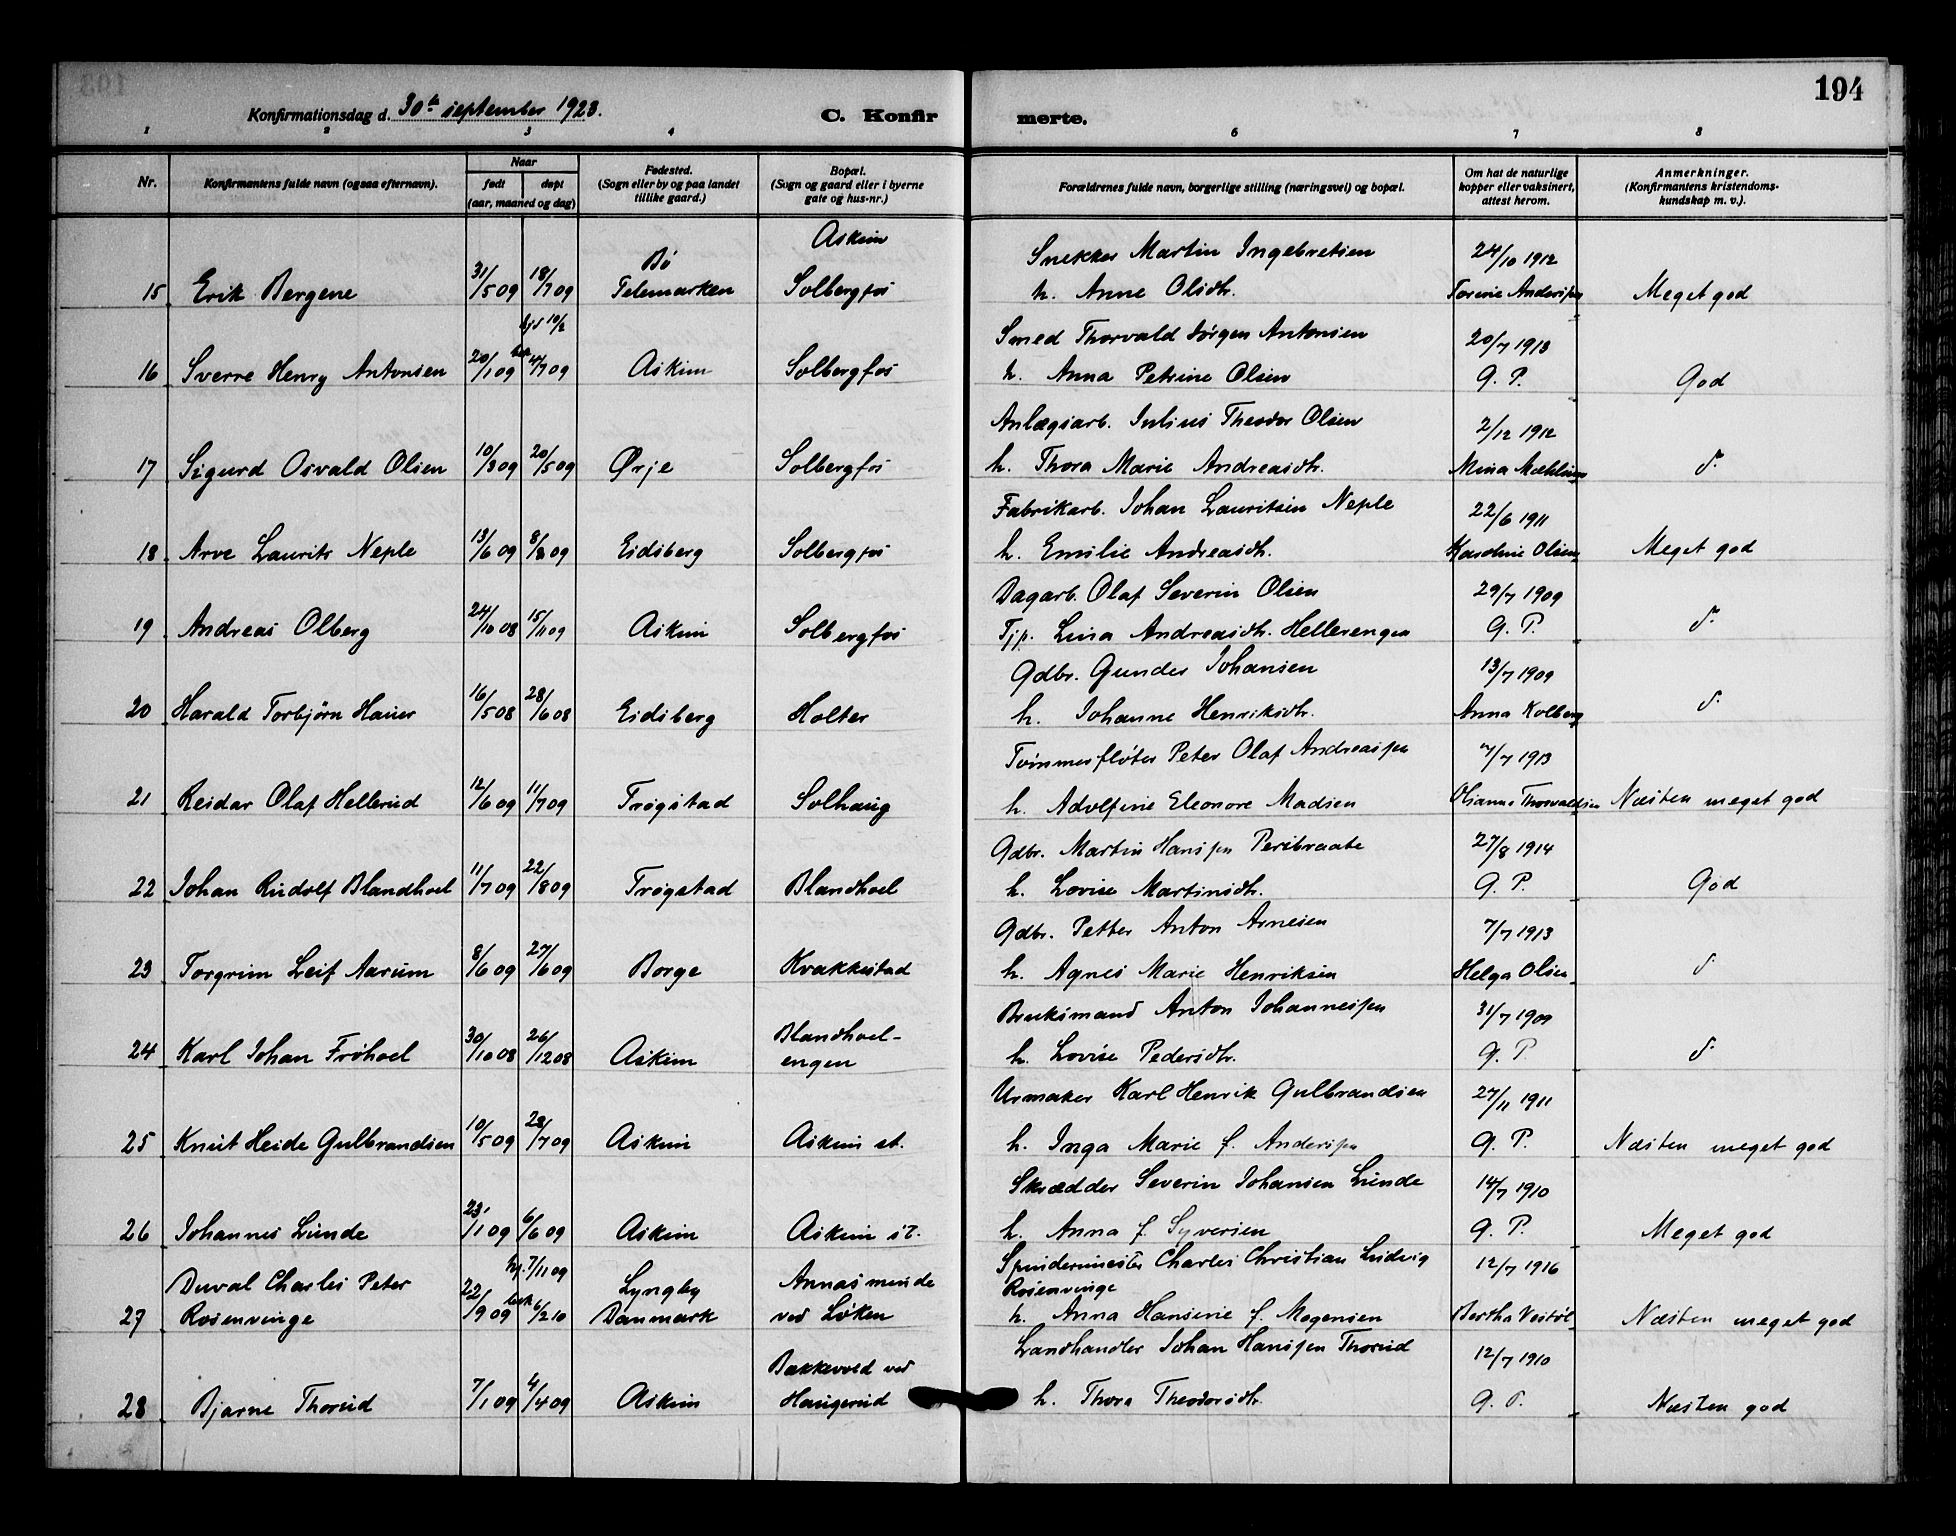 194
Konfirmationsdag d. 30te september 1923.
C. Konfirmerte.
1 2 3 4 5 6 7 8
Nr.
Konfirmantens fulde navn (ogsaa efternavn).
Naar
født
døpt
(aar, maaned og dag)
Fødested.
(Sogn eller by og paa landet
tillike gaard.)
Bopæl.
(Sogn og gaard eller i byerne
gate og hus-nr.)
Forældrenes fulde navn, borgerlige stilling (næringsvei) og bopæl.
Om hat de naturlige
kopper eller vaksinert,
attest herom.
Anmerkninger.
(Konfirmantens kristendoms-
kundskap m. v.).
Askim
Bø Snekker Martin Ingebretsen 24/10 1912
15 Erik Bergene 31/5 09 18/7 09 Telemarken Solbergfos h. Anne Olsdtr. Torine Anderssen Meget god
hjd 10/2 Smed Thorvald Jørgen Antonsen 20/7 1918
16 Sverre Henry Antonsen 20/1 09 bek 4/7 09 Askim Solbergfos h. Anna Petrine Olsen G. P. God
Anlægsarb. Julius Theodor Olsen 2/12 1912
17 Sigurd Osvald Olsen 10/3 09 20/5 09 Ørje Solbergfos h. Thora Marie Andreasdtr. Mina Mæhlum d.
Fabrikarb. Johan Lauritsen Neple 22/6 1911
18 Arve Laurits Neple 13/6 09 8/8 09 Eidsberg Solbergfos h. Emilie Andreasdtr. Karoline Olsen Meget god
Dagarb. Olaf Severin Olsen 29/7 1909
19 Andreas Olberg 24/10 08 15/11 09 Askim Solbergfos Tjp. Lina Andreasdtr. Hellerengen G. P. d.
Gdbr. Gunder Johansen 13/7 1909
20 Harald Torbjørn Hauer 16/5 08 28/6 08 Eidsberg Holter h. Johanne Henriksdtr. Anna Kolberg d.
Tømmerfløter Peter Olaf Andreassen 7/7 1913
21 Reidar Olaf Hellerud 12/6 09 11/7 09 Trøgstad Solhaug h. Adolfine Eleonore Madsen Olianna Thorvaldsen Næsten meget god
Gdbr. Martin Hanssen Persbraate 27/8 1914
22 Johan Rudolf Blandhoel 11/7 09 22/8 09 Trøgstad Blandhoel h. Lovise Martinsdtr. G. P. God
Gdbr. Petter Anton Arnesen 7/7 1913
23 Torgrim Leif Aarum 8/6 09 27/6 09 Borge Kvakkestad h. Agnes Marie Henriksen Helga Olsen d
Bruksmand Anton Johannessen 31/7 1909
24 Karl Johan Frøhoel 30/10 08 26/12 08 Askim Blandhoel-
engen h. Lovise Pedersdtr. G. P d.
Urmaker Karl Henrik Gulbrandsen 27/11 1911
25 Knut Heide Gulbrandsen 10/5 09 28/7 09 Askim Askim st. h. Inga Marie f. Anderssen G. P. Næsten meget god
Skrædder Severin Johansen Lunde 14/7 1910
26 Johannes Lunde 23/1 09 6/6 09 Askim Askim st. h. Anna f. Syversen G. P. Meget god
Duval Charles Peter hj. 7/11 09 Lyngby Annasminde Spindermester Charles Christian Ludvig 12/7 1916
Rosenvinge
27 Rosenvinge 22/9 09 bek 6/2 10 Danmark ved Løken h. Anna Hansine f. Mogensen Bertha Vestøl Næsten meget god
Bakkevold ved Landhandler Johan Hanssen Thorud 12/7 1910
28 Bjarne Thorud 7/1 09 4/4 09 Askim Haugerud h. Thora Theodorsdtr. G. P. Næsten god